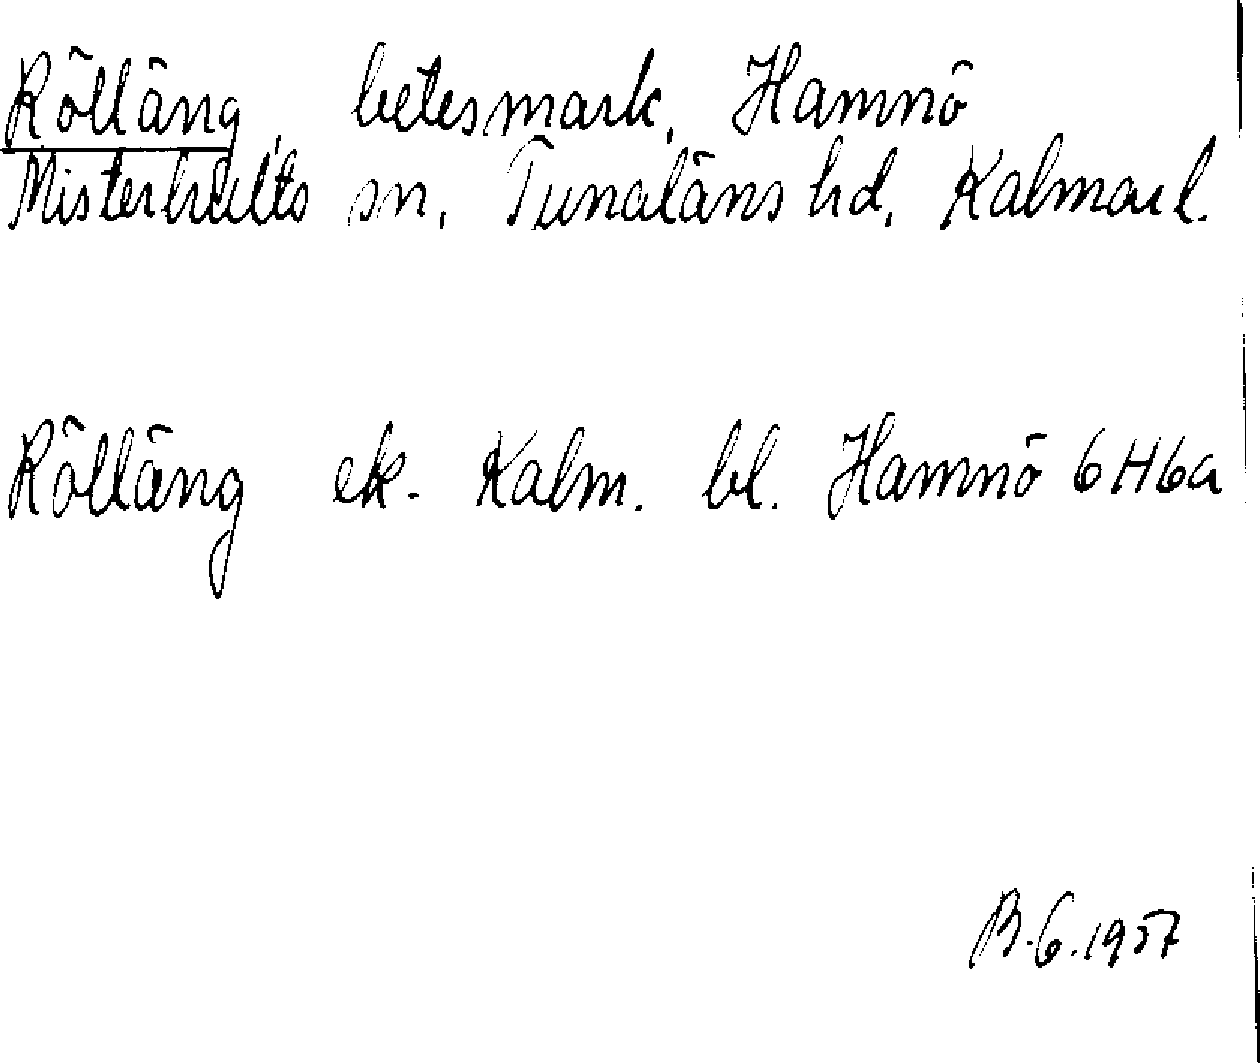 Rölläng, betesmark, Hamnö
Misterhults sn, Tunaläns hd, Kalmar l.
Rölläng ek. Kalm. bl. Hamnö 6H6a
B.G. 1957